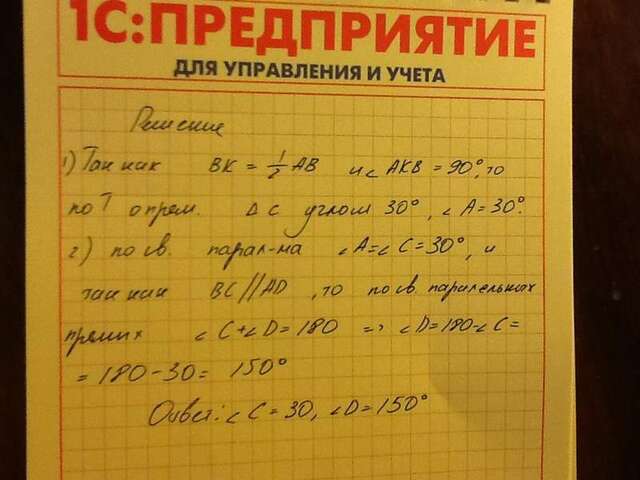 1С:ПРЕДПРИЯТИЕ
ДЛЯ УПРАВЛЕНИЯ И УЧЕТА
Решение
1) Так как BK = 1/2 AB и ∠ AKB = 90°, то
по Т о прям. Δ с углом 30°, ∠A=30°.
2) по св. парал-ма ∠A=∠C=30°, и
так как BC//AD, то по св. паралельных
прямых ∠C+∠D=180 => ∠D=180-∠C=
= 180-30= 150°
Ответ: ∠C=30, ∠D=150°